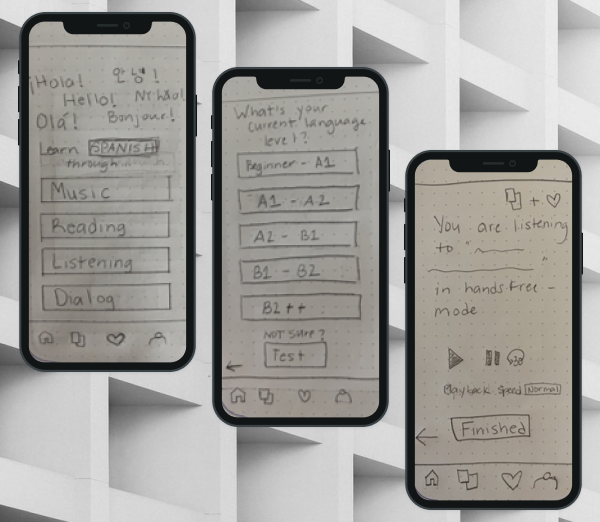 ¡Hola!
안녕!
Hello!
Ni hao!
Olá!
Bonjour!
Learn SPANISH
through...
Music
Reading
Listening
Dialog
What's your
current language
level?
Beginner - A1
A1 - A2
A2 - B1
B1 - B2
B2 ++
NOT SURE?
Test
+
You are listening
to "
"
in hands free -
mode
Playback Speed Normal
Finished